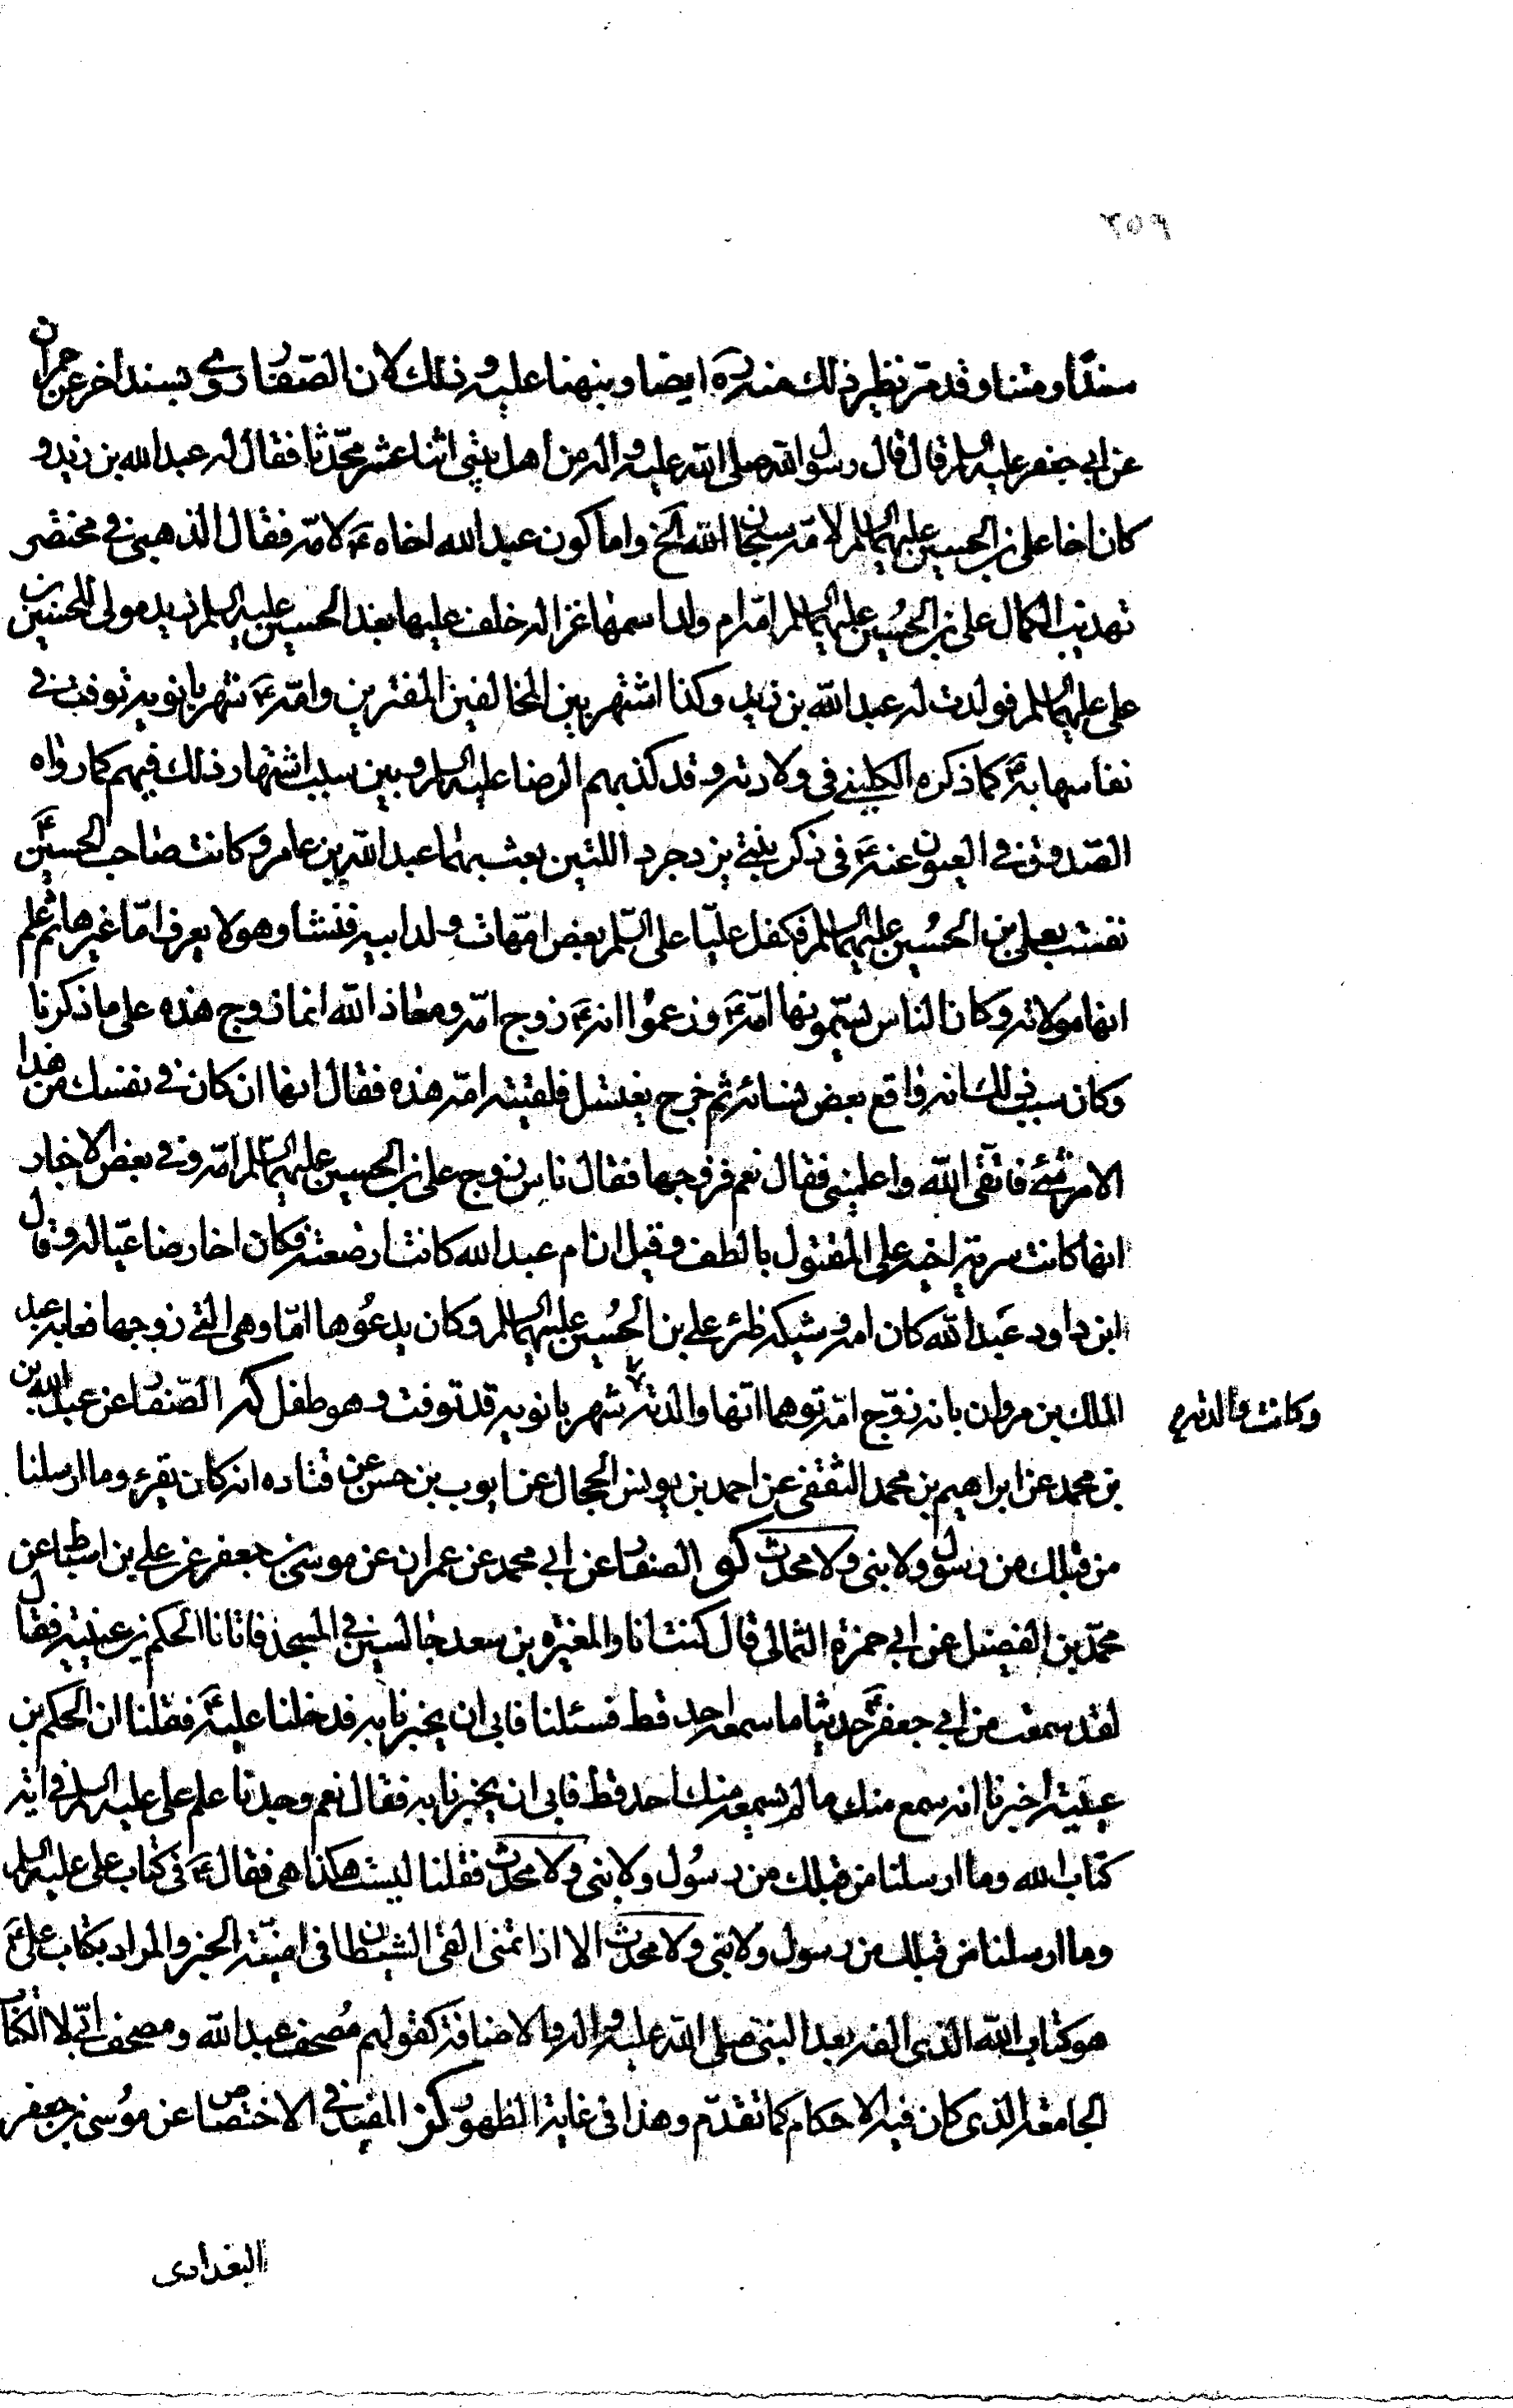 ٢٥٩
سندًا ومتنا وقد مر نظير ذلك منه ره ايضا وبنهنا عليه وذلك لان الصفار روى بسند اخر عن حمران
عن ابي جعفر عليه السلم قال قال رسول الله صلى الله عليه واله من اهل بيتى اثنا عشر محدّثا فقال له عبد الله بن زيد و
كان اخا على بن الحسين عليهما السلم لامّه سبحان الله الخ واما كون عبد الله اخاه ع لامّه فقال الذهبى فى مختصر
تهذيب الكمال على بن الحسين عليهما السلم امّه ام ولد اسمها غزاله خلف عليها بعد الحسين عليه السلم زيد مولى الحسين بن
على عليهما السلم فولدت له عبد الله بن زيد وكذا اشتهر بين المخالفين المفترين وامّه ع شهر بانويه توفيت فى
نفاسها به ع كما ذكره الكلينى فى ولادته وقد كذبهم الرضا عليه السلم وبين سبب اشتهار ذلك فيهم كما رواه
الصدوق فى العيون عنه ع فى ذكر بنتى يزدجرد اللتين بعث بهما عبد الله بن عامر وكانت صاحب الحسين ع
نفست بعلى بن الحسين عليهما السلم فكفل عليّا على السّلم بعض امّهات ولد ابيه فنشأ وهو لا يعرف امّا غيرها ثم علم
انها مولاته وكان الناس يسمّونها امّه ع وزعموا انه ع زوج امّه ومعاذ الله انما زوج هذه على ما ذكرنا
وكان سبب ذلك انه واقع بعض نسائه ثم خرج يغتسل فلقيته امّه هذه فقال لها ان كان فى نفسك من هذا
الامر شئ فاتقى الله واعلمينى فقال نعم فزوجها فقال ناس زوج على بن الحسين عليهما السلم امّه وفى بعض الاخبار
انها كانت سرية اخيه على المقتول بالطف وقيل ان ام عبد الله كانت ارضعته فكان اخا رضاعيّا له وقال
ابن داود عبد الله كان امه وشيكه ظئر على بن الحُسين عليهما السلم وكان يدعوها امّا وهى التى زوجها فعابه عبد
الملك بن مروان بانه زوّج امّه توهما انّها والدته شهر بانويه قد توفت وهو طفل كه الصّفار عن عبد الله بن
وكانت والدته م
بن محمد عن ابراهيم بن محمد الثقفى عن احمد بن يونس الحجال عن ايوب بن حسن عن قتاده انه كان يقرء وما ارسلنا
من قبلك من رسول ولا نبى ولا محدث كو الصفار عن ابى محمد عن عمران عن موسى بن جعفر عن على بن اسباط عن
محمّد بن الفضيل عن ابى حمزة الثمالى قال كنت انا والمغيره بن سعد جالسين فى المسجد فاتانا الحكم بن عيينه فقال
لقد سمعت من ابى جعفر ع حديثا ما سمعه احد قط فسئلنا فابى ان يخبرنا به فدخلنا عليه ع فقلنا ان الحكم بن
عيينه اخبرنا انه سمع منك ما لم يسمعه منك احد قط فابى ان يخبرنا به فقال نعم وجدنا علم على عليه السلم فى اية
كتاب الله وما ارسلنا من قبلك من رسول ولا نبى ولا محدث فقلنا ليست هكذا هى فقال ع فى كتاب على عليه السلم
وما ارسلنا من قبلك من رسول ولا نبى ولا محدث الا اذا تمنى القى الشيطان فى امنيّته الخبر والمراد بكتاب على ع
هو كتاب الله الذى الفه بعد النبى صلى الله عليه واله والاضافة كقولهم مُصحف عبد الله ومصحف ابىّ لا الكتاب
الجامعة الذى كان فيه الاحكام كما تقدّم وهذا فى غاية الظهور كز المفيد فى الاختصاص عن موسى بن جعفر
البغدادى